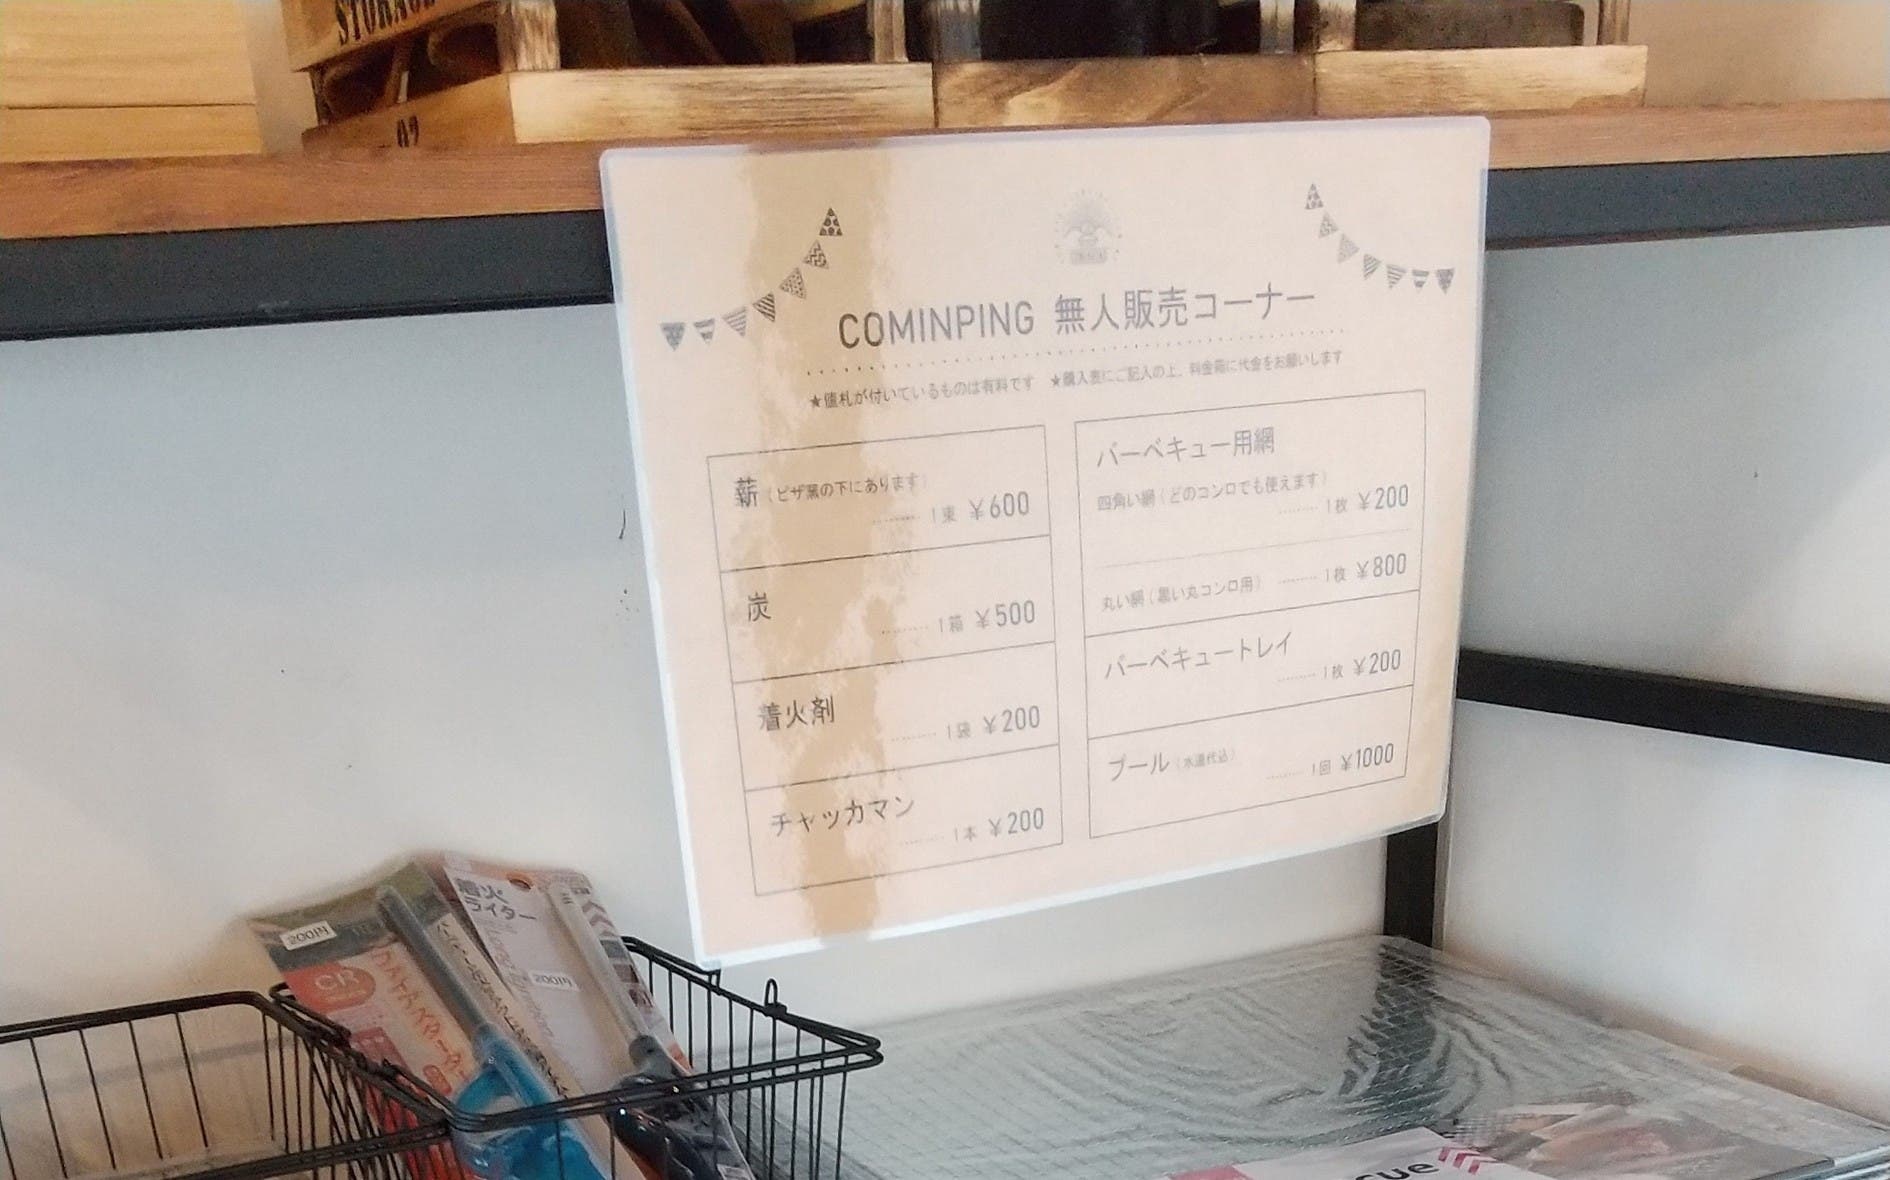 STORAGE
02
COMINPING 無人販売コーナー
★値札が付いているものは有料です ★購入表にご記入の上、料金箱に代金をお願いします
薪（ピザ窯の下にあります）
1束 ¥600
炭
1箱 ¥500
着火剤
1袋 ¥200
チャッカマン
1本 ¥200
バーベキュー用網
四角い網（どのコンロでも使えます）
1枚 ¥200
丸い網（黒い丸コンロ用） 1枚 ¥800
バーベキュートレイ
1枚 ¥200
プール（水道代込）
1回 ¥1000
200円
CR
着火
ライター
200円
cue